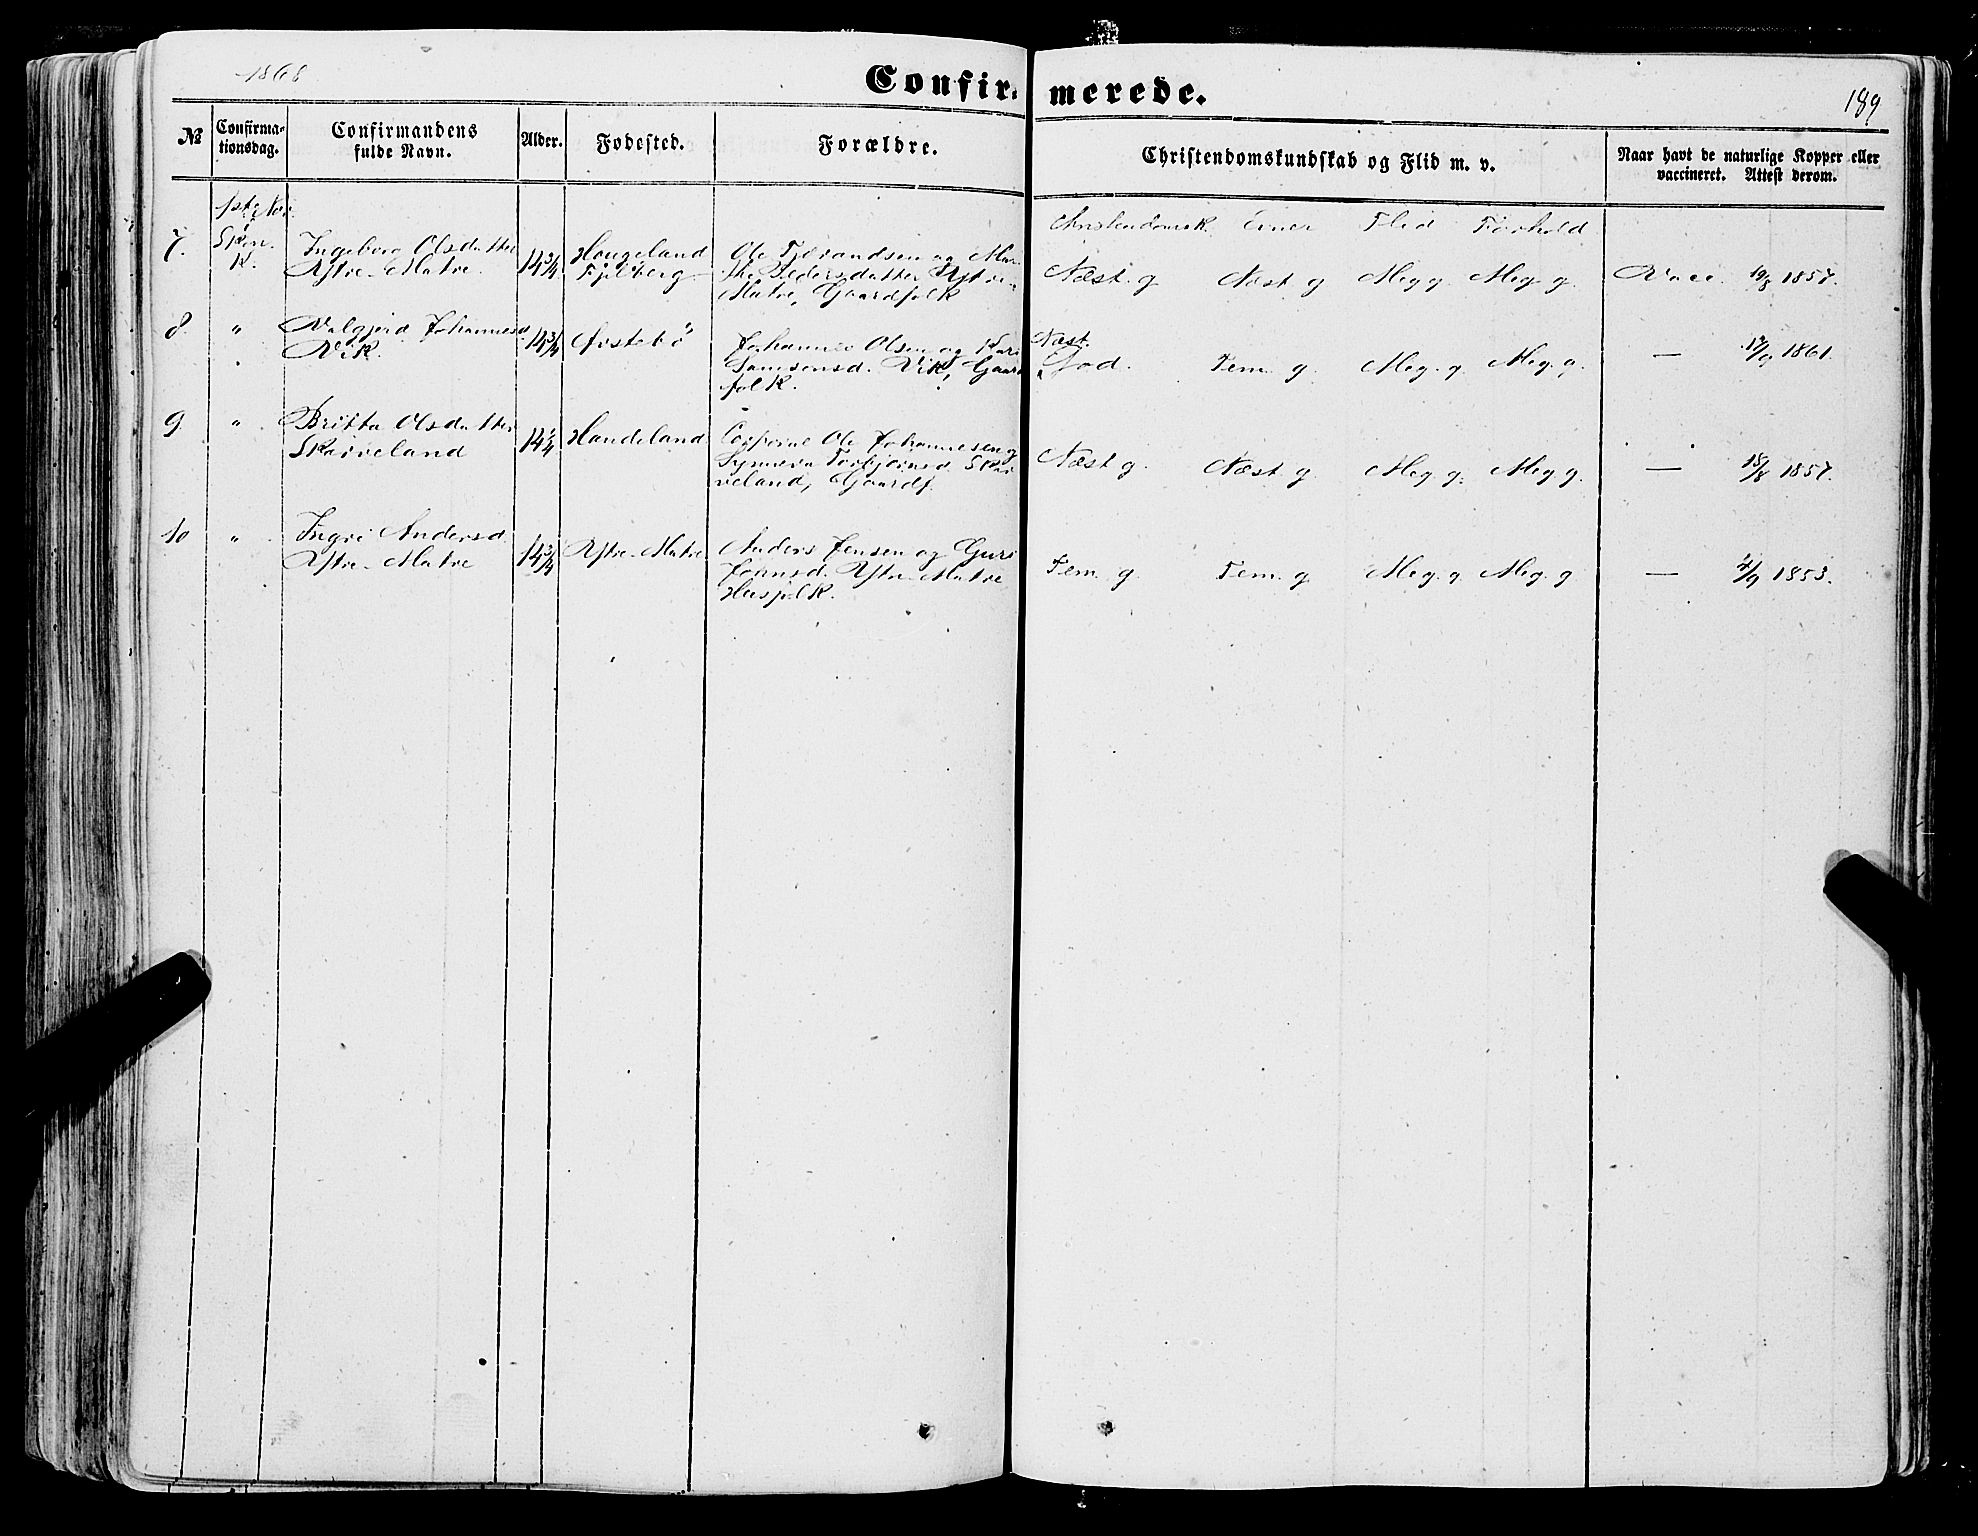 1868
Confirmerede.
189
№
Confirma-
tionsdag.
Confirmandens
fulde Navn.
Alder.
Fødested.
Forældre.
Christendomskundskab og Flid m. v.
Naar havt de naturlige Kopper eller
vaccineret. Attest derom.
1ste Nov.
Christendomsk. Evner Flid Forhold
7. Skon. K.
Ingeborg Olsdatter
Ystre-Matre.
14 3/4
Hougeland
Fjelberg
Ole Tjerandsen og Mar-
the Pedersdatter Ystre-
Matre, Gaardfolk
Næst. g. Næst g Meg g. Meg. g. Vacc. 19/8 1857.
8. "
Valgjerd Johannesd.
Vik.
14 3/4
Østebö
Johannes Olsen og Kari
Samsonsd. Vik, Gaard
folk.
Næst.
God. Tem. g. Meg. g. Meg. g. — 17/9 1861.
9 "
Britta Olsdatter
Skarveland
14 1/4
Handeland
Corporal Ole Johannesen og
Synneva Torbjørnsd. Skar
veland, Gaardf.
Næst g. Næst g. Meg. g. Meg g. — 18/8 1857.
10 "
Ingri Andersd.
Ystre-Matre
14 3/4
Ystre-Matre
Anders Jensen og Guri
Johnsd. Ystre-Matre
Husfolk.
Tem. g. Tem. g. Meg. g Meg. g — 4/9 1853.